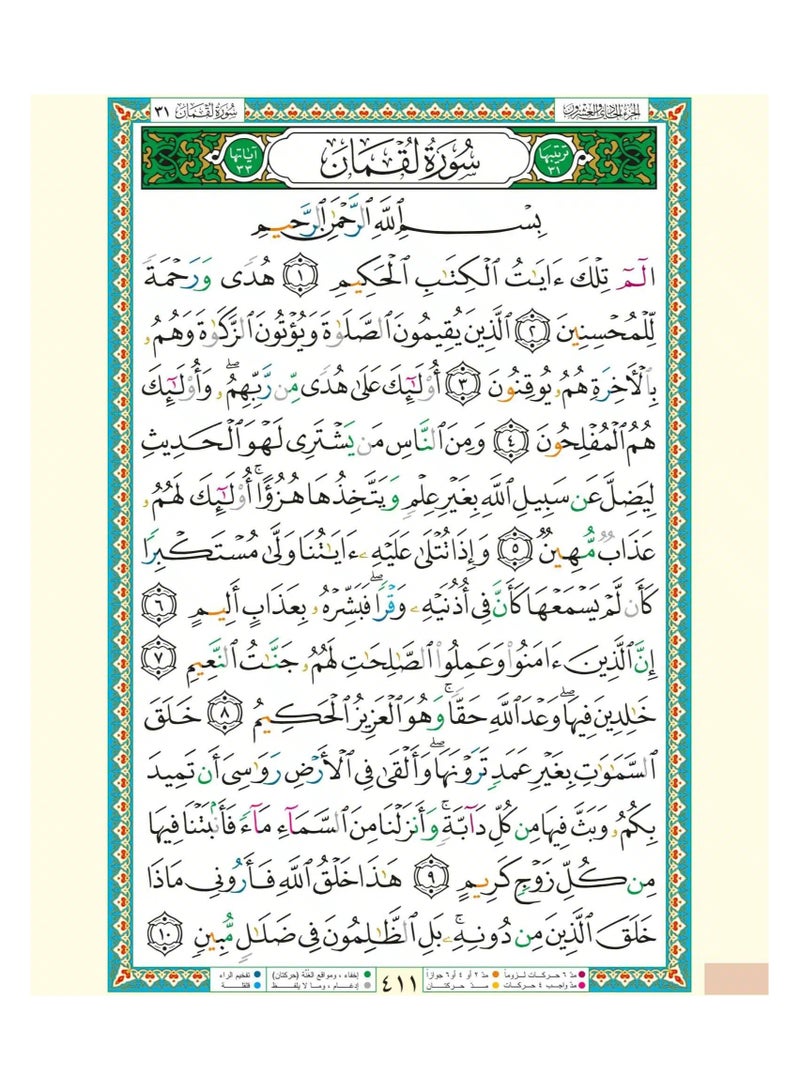 الجزء الحادي والعشرون
سُورَةُ لُقْمَان ٣١
تَرتيبُها ٣١
سُورَةُ لُقْمَان
آيَاتُها ٣٣
بِسْمِ اللَّهِ الرَّحْمَٰنِ الرَّحِيمِ
الٓمٓ تِلْكَ ءَايَٰتُ الْكِتَٰبِ الْحَكِيمِ ١ هُدًى وَرَحْمَةً
لِّلْمُحْسِنِينَ ٢ الَّذِينَ يُقِيمُونَ الصَّلَوٰةَ وَيُؤْتُونَ الزَّكَوٰةَ وَهُمُۥ
بِالْأَخِرَةِ هُمُۥ يُوقِنُونَ ٣ أُوْلَٰٓئِكَ عَلَىٰ هُدًى مِّن رَّبِّهِمُۥۖ وَأُوْلَٰٓئِكَ
هُمُ الْمُفْلِحُونَ ٤ وَمِنَ النَّاسِ مَن يَشْتَرِى لَهْوَ الْحَدِيثِ
لِيَضِلَّ عَن سَبِيلِ اللَّهِ بِغَيْرِ عِلْمٍ وَيَتَّخِذُهَا هُزُؤًاۚ أُوْلَٰٓئِكَ لَهُمُۥ
عَذَابٌ مُّهِينٌ ٥ وَإِذَا تُتْلَىٰ عَلَيْهِۦ ءَايَٰتُنَا وَلَّىٰ مُسْتَكْبِرًا
كَأَن لَّمْ يَسْمَعْهَا كَأَنَّ فِى أُذُنَيْهِۦ وَقْرًاۖ فَبَشِّرْهُۥ بِعَذَابٍ أَلِيمٍ ٦
إِنَّ الَّذِينَ ءَامَنُوا۟ وَعَمِلُوا۟ الصَّٰلِحَٰتِ لَهُمُۥ جَنَّٰتُ النَّعِيمِ ٧
خَٰلِدِينَ فِيهَاۖ وَعْدَ اللَّهِ حَقًّاۚ وَهُوَ الْعَزِيزُ الْحَكِيمُ ٨ خَلَقَ
السَّمَٰوَٰتِ بِغَيْرِ عَمَدٍ تَرَوْنَهَاۖ وَأَلْقَىٰ فِى الْأَرْضِ رَوَٰسِىَ أَن تَمِيدَ
بِكُمُۥ وَبَثَّ فِيهَا مِن كُلِّ دَآبَّةٍۚ وَأَنزَلْنَا مِنَ السَّمَآءِ مَآءً فَأَنۢبَتْنَا فِيهَا
مِن كُلِّ زَوْجٍ كَرِيمٍ ٩ هَٰذَا خَلْقُ اللَّهِ فَأَرُونِى مَاذَا
خَلَقَ الَّذِينَ مِن دُونِهِۦۚ بَلِ الظَّٰلِمُونَ فِى ضَلَٰلٍ مُّبِينٍ ١٠
مدّ ٦ حركات لزوماً مدّ ٢ أو ٤ أو ٦ جوازاً
مدّ واجب ٤ حركات مدّ حركتان
٤١١
إخفاء، ومواقع الغنّة (حركتان) تفخيم الراء
إدغام، وما لا يلفظ قلقلة